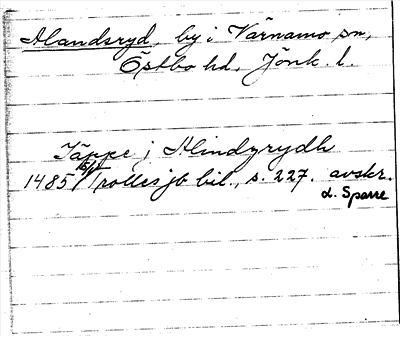 Alandsryd, by i Värnamo sn,
Östbo hd, Jönk. l.
Jäppe i Alindzrydh
1485 15/1 Trolles jb bil., s. 227. avskr.
d. Sparre